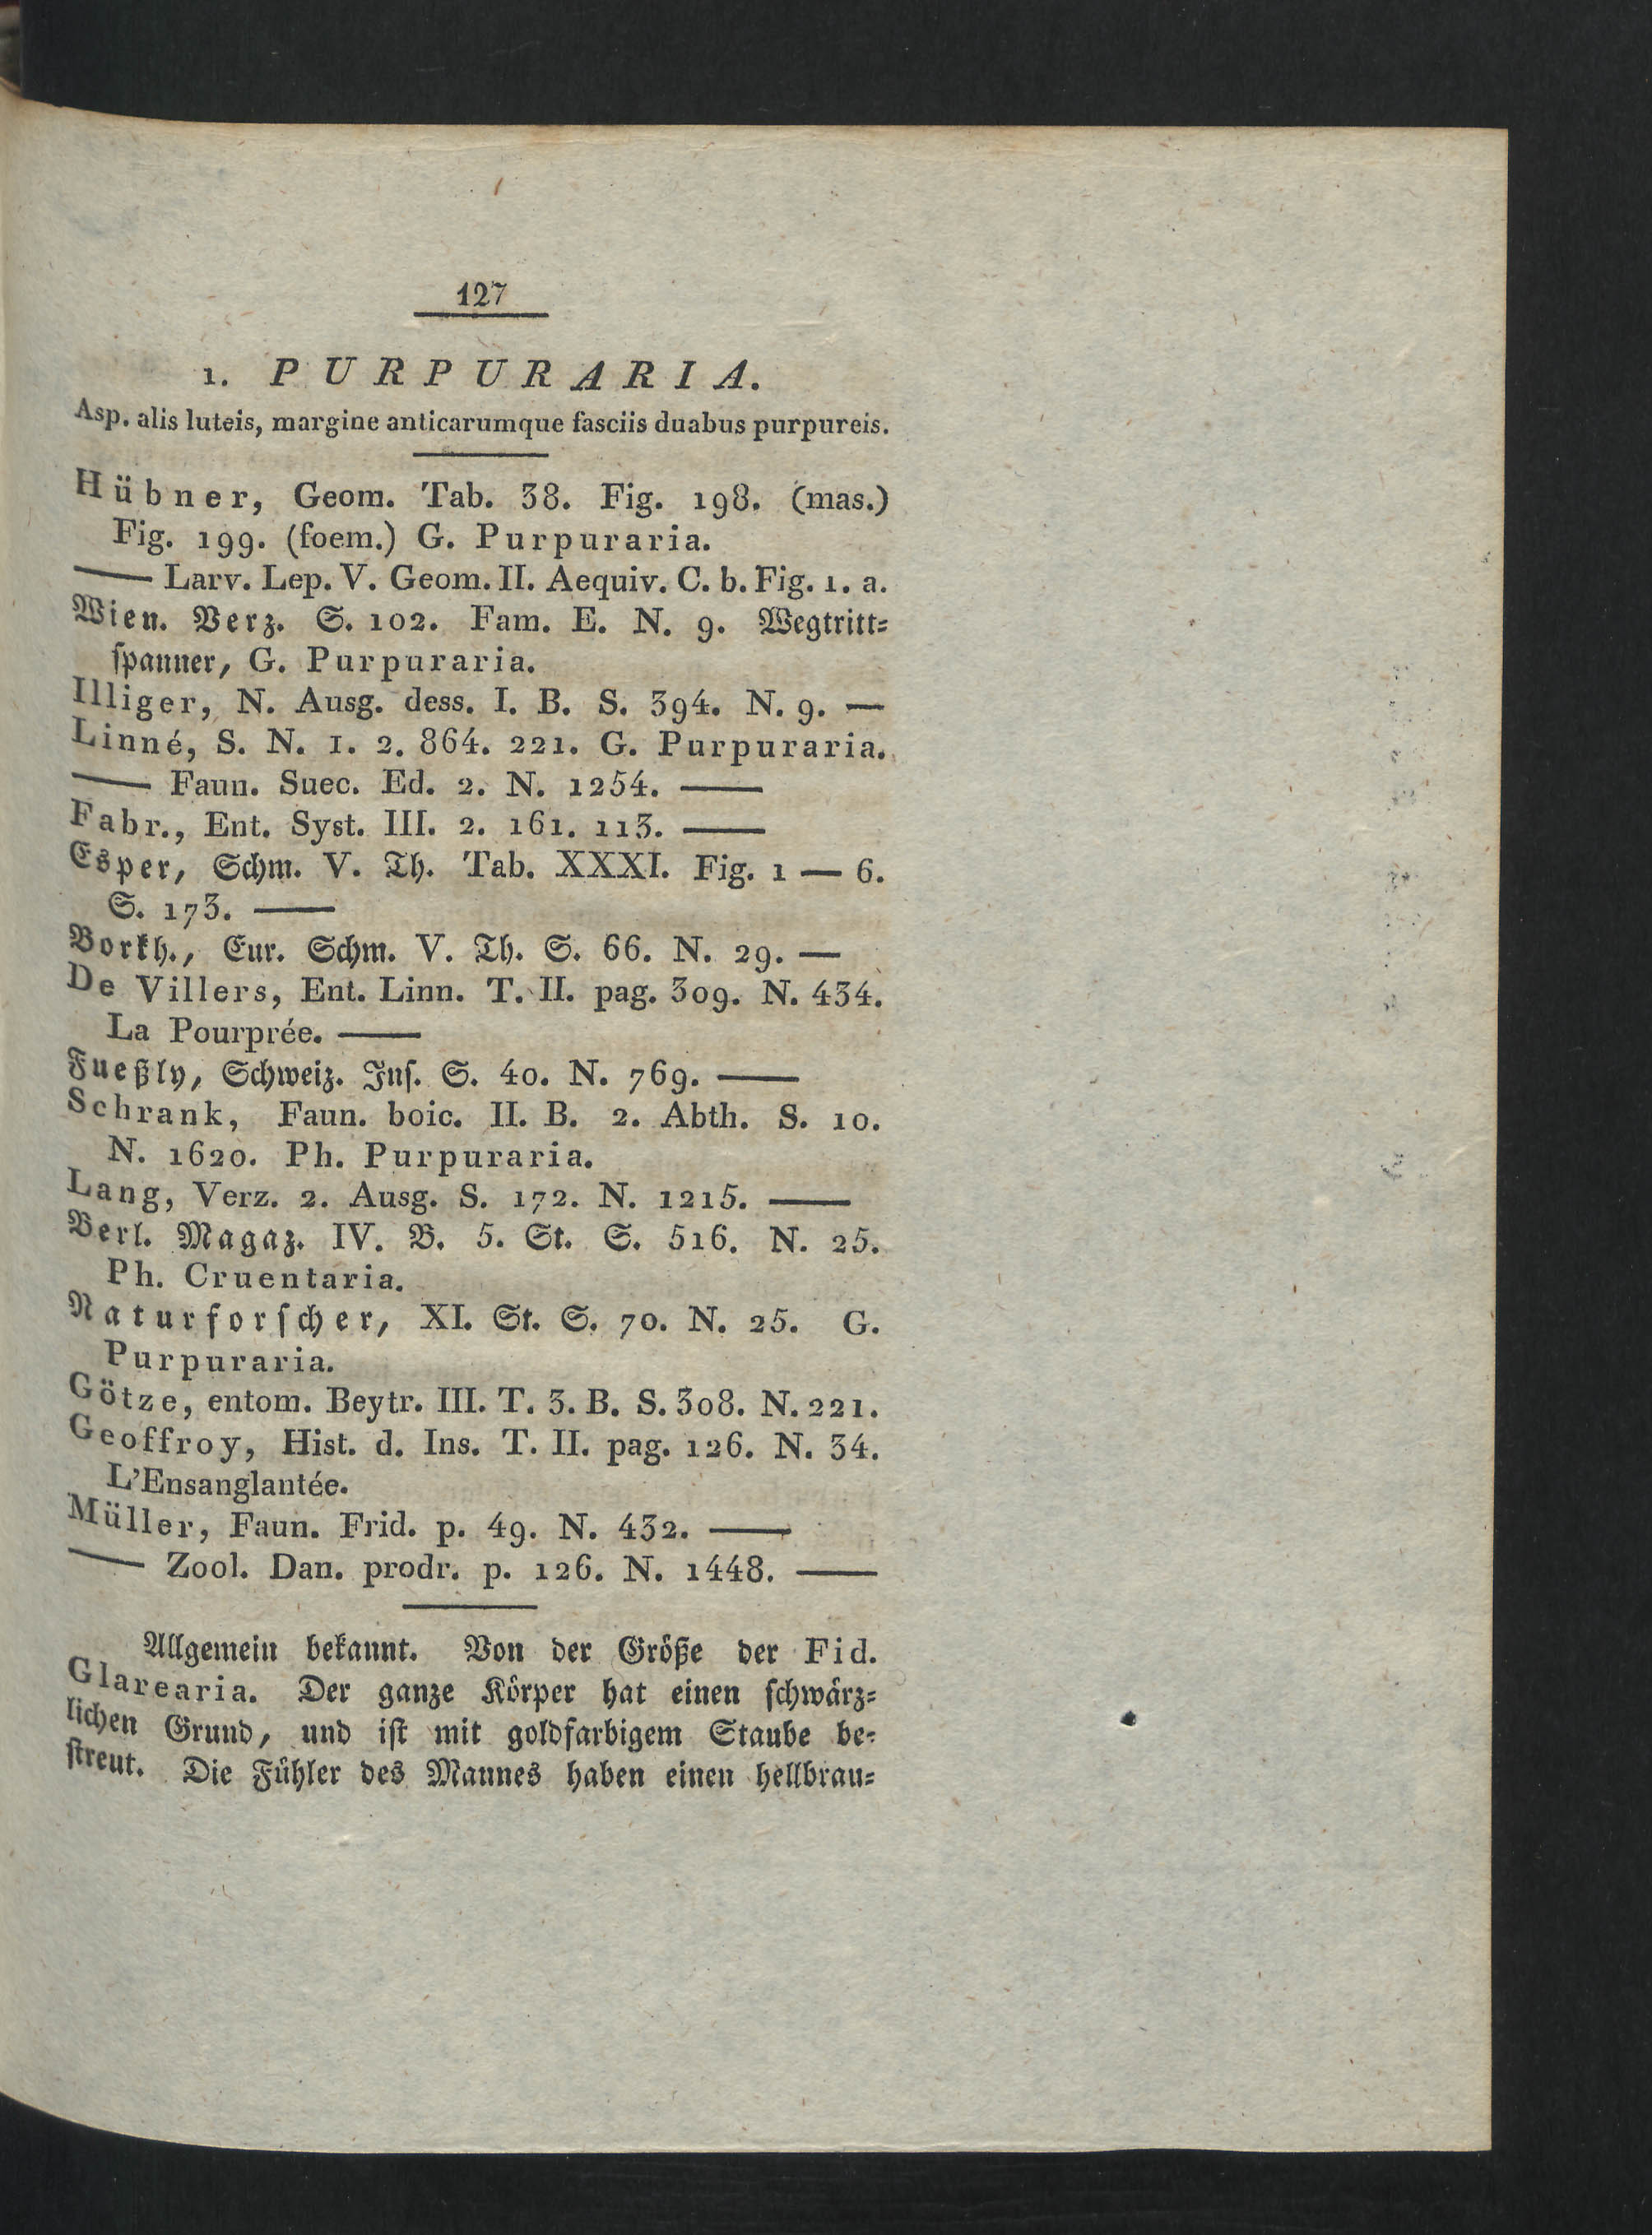 127
1. PURPURARIA.
Asp. alis luteis, margine anticarumque fasciis duabus purpureis.
Hübner, Geom. Tab. 38. Fig. 198. (mas.)
Fig. 199. (foem.) G. Purpuraria.
— Larv. Lep. V. Geom. II. Aequiv. C. b. Fig. 1. a.
Wien. Verz. S. 102. Fam. E. N. 9. Wegtritt=
ſpanner, G. Purpuraria.
Illiger, N. Ausg. dess. I. B. S. 394. N. 9. —
Linné, S. N. 1. 2. 864. 221. G. Purpuraria.
— Faun. Suec. Ed. 2. N. 1254. —
Fabr., Ent. Syst. III. 2. 161. 113. —
Esper, Schm. V. Th. Tab. XXXI. Fig. 1 — 6.
S. 173. —
Borkh., Eur. Schm. V. Th. S. 66. N. 29. —
De Villers, Ent. Linn. T. II. pag. 309. N. 434.
La Pourprée. —
Fueßly, Schweiz. Inſ. S. 40. N. 769. —
Schrank, Faun. boic. II. B. 2. Abth. S. 10.
N. 1620. Ph. Purpuraria.
Lang, Verz. 2. Ausg. S. 172. N. 1215. —
Berl. Magaz. IV. B. 5. St. S. 516. N. 25.
Ph. Cruentaria.
Naturforſcher, XI. St. S. 70. N. 25. G.
Purpuraria.
Götze, entom. Beytr. III. T. 3. B. S. 308. N. 221.
Geoffroy, Hist. d. Ins. T. II. pag. 126. N. 34.
L'Ensanglantée.
Müller, Faun. Frid. p. 49. N. 432. —
— Zool. Dan. prodr. p. 126. N. 1448. —
Allgemein bekannt. Von der Größe der Fid.
Glarearia. Der ganze Körper hat einen ſchwärz=
lichen Grund, und iſt mit goldfarbigem Staube be=
ſtreut. Die Fühler des Mannes haben einen hellbrau=